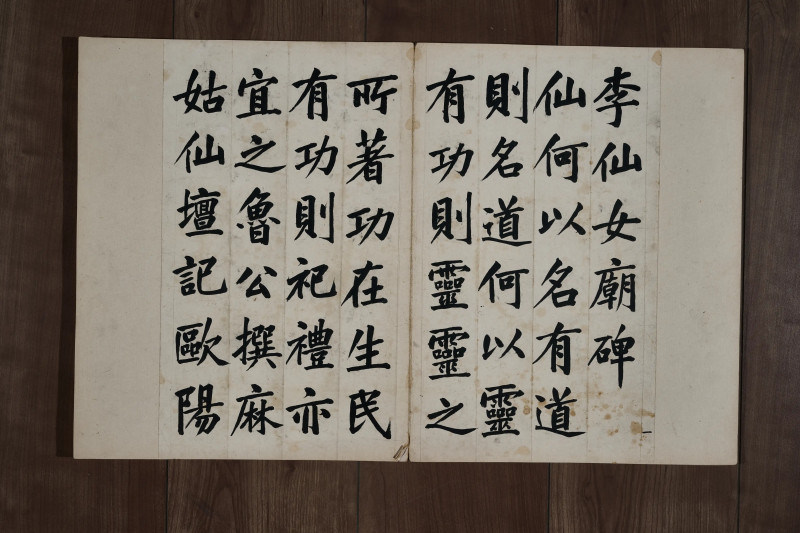 李仙女廟碑
仙何以名有道
則名道何以靈
有功則靈靈之
所著功在生民
有功則祀禮亦
宜之魯公撰麻
姑仙壇記歐陽
一